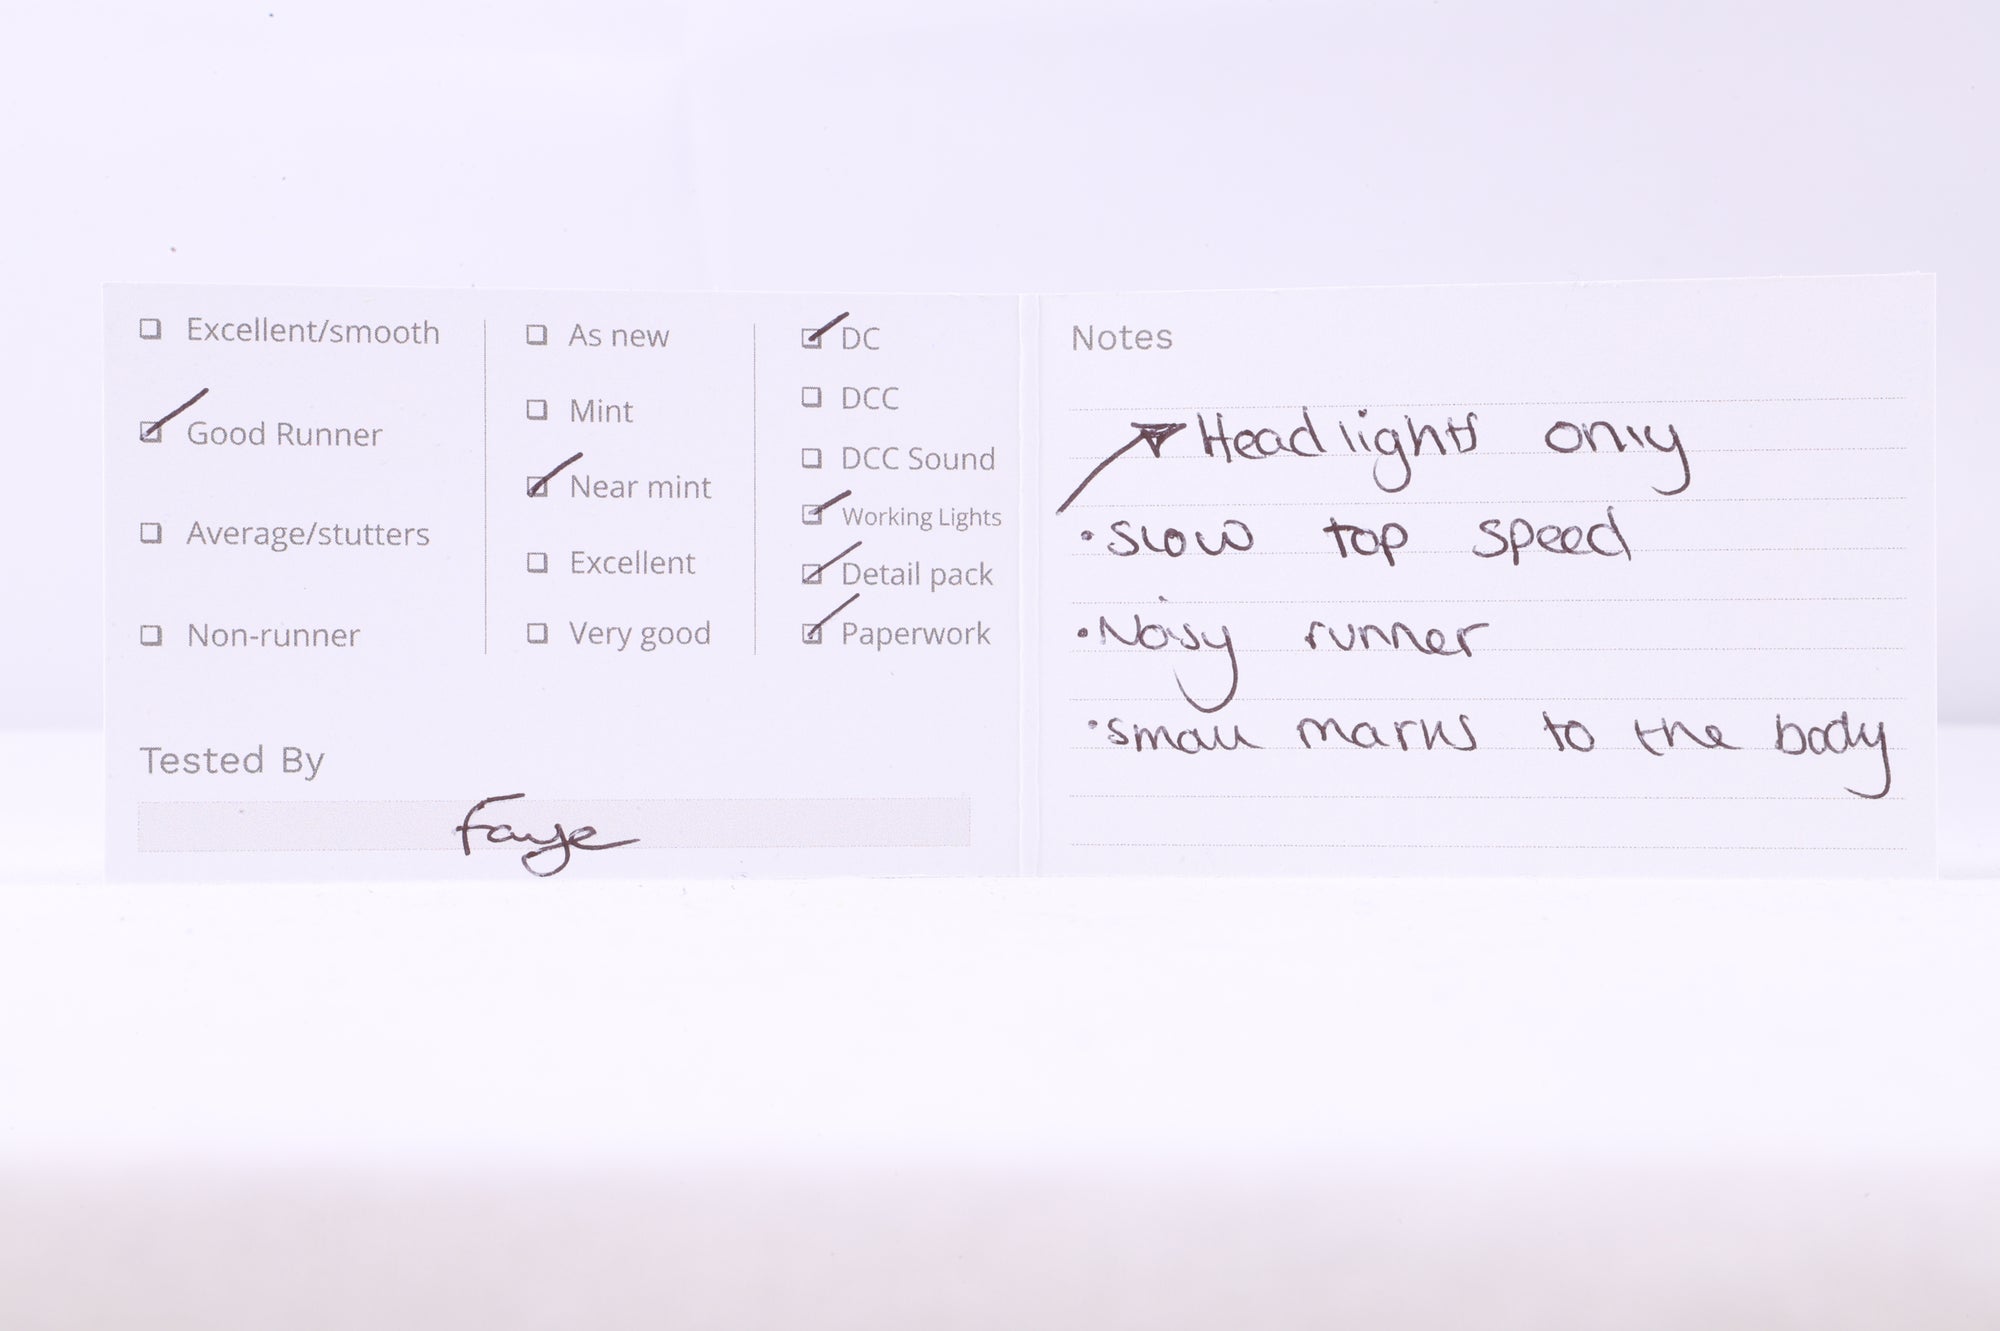 Excellent/smooth
Good Runner
Average/stutters
Non-runner
As new
Mint
Near mint
Excellent
Very good
DC
DCC
DCC Sound
Working Lights
Detail pack
Paperwork
Tested By
Faye
Notes
Headlights only
• Slow top speed
• Noisy runner
• small marks to the body